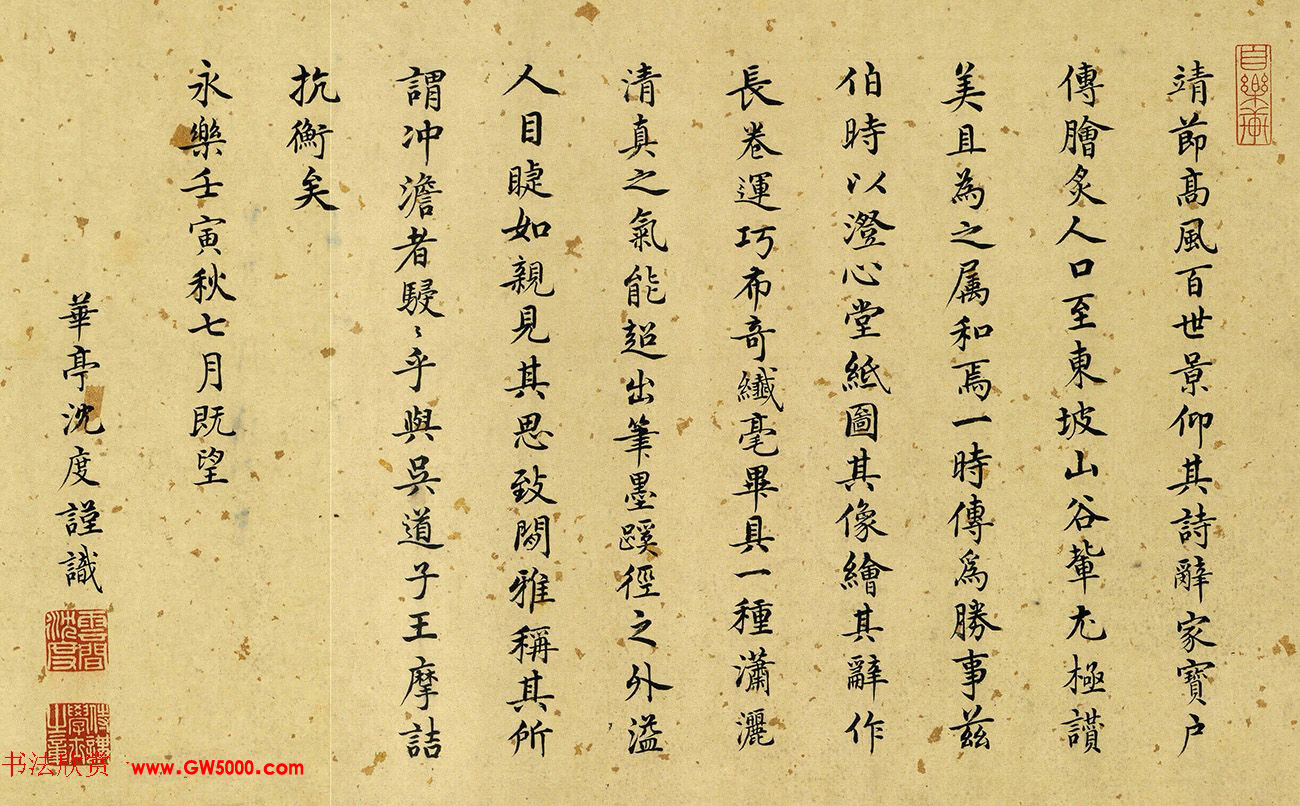 靖節高風百世景仰其詩辭家寶户
傳膾炙人口至東坡山谷輩尤極讚
美且為之属和焉一時傳爲勝事兹
伯時以澄心堂紙圖其像繪其辭作
長卷運巧布奇纖毫畢具一種瀟灑
清真之氣能超出筆墨蹊徑之外溢
人目睫如親見其思致閒雅稱其所
謂冲澹者駸〻乎與吳道子王摩詰
抗衡矣
永樂壬寅秋七月既望
華亭沈度謹識
書法欣赏 www.GW5000.com